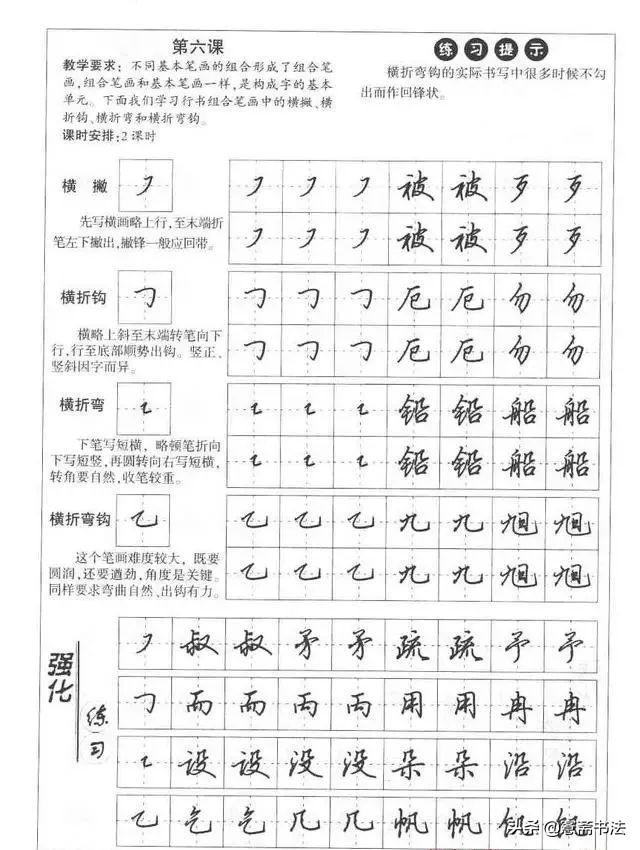 第六课
教学要求：不同基本笔画的组合形成了组合笔
画，组合笔画和基本笔画一样，是构成字的基本
单元。下面我们学习行书组合笔画中的横撇、横
折钩、横折弯和横折弯钩。
课时安排：2课时
练习提示
横折弯钩的实际书写中很多时候不勾
出而作回锋状。
横撇
㇇ ㇇ ㇇ ㇇ 被 被 歹 歹
先写横画略上行，至末端折
笔左下撇出，撇锋一般应回带。
㇇ ㇇ ㇇ 被 被 歹 歹
横折钩
㇆ ㇆ ㇆ ㇆ 厄 厄 勿 勿
横略上斜至末端转笔向下
行，行至底部顺势出钩。竖正、
竖斜因字而异。
㇆ ㇆ ㇆ 厄 厄 勿 勿
横折弯
㇍ ㇍ ㇍ ㇍ 铅 铅 船 船
下笔写短横，略顿笔折向
下写短竖，再圆转向右写短横，
转角要自然，收笔较重。
㇍ ㇍ ㇍ 铅 铅 船 船
横折弯钩
乙 乙 乙 乙 九 九 旭 旭
这个笔画难度较大，既要
圆润，还要遒劲，角度是关键。
同样要求弯曲自然、出钩有力。
乙 乙 乙 九 九 旭 旭
强化
练习
㇇ 叔 叔 矛 矛 疏 疏 予 予
㇆ 而 而 丙 丙 用 用 冉 冉
㇍ 设 设 没 没 朵 朵 沿 沿
乙 气 气 几 几 帆 帆
头条@慧斋书法